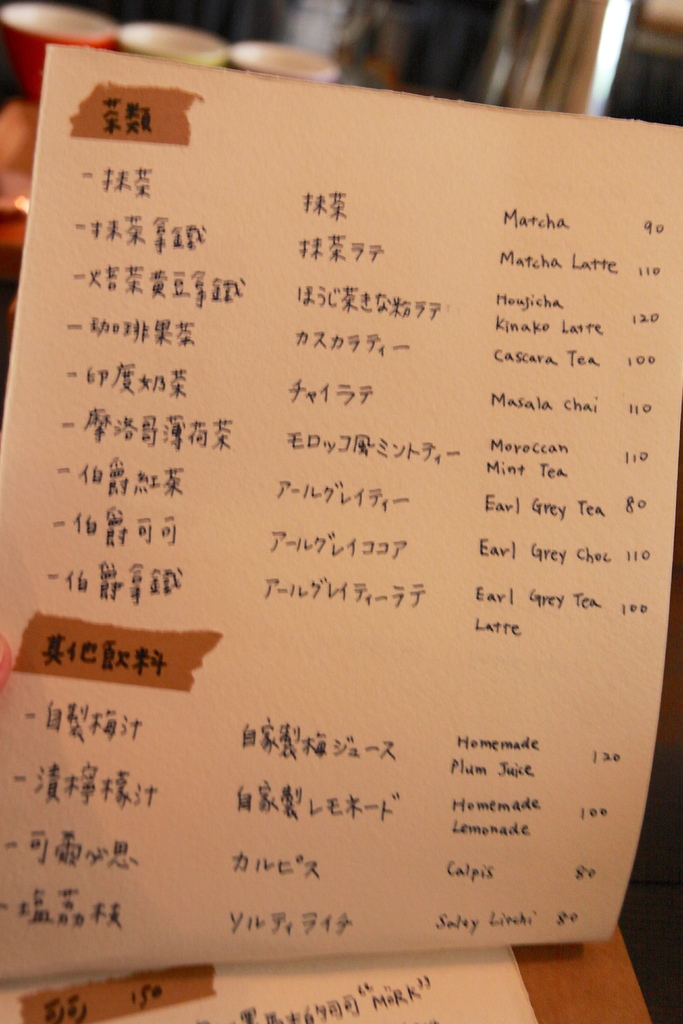 茶類
- 抹茶 抹茶 Matcha 90
- 抹茶拿鐵 抹茶ラテ Matcha Latte 110
- 焙茶黃豆拿鐵 ほうじ茶きな粉ラテ Houjicha
Kinako Latte 120
- 咖啡果茶 カスカラティー Cascara Tea 100
- 印度奶茶 チャイラテ Masala Chai 110
- 摩洛哥薄荷茶 モロッコ風ミントティー Moroccan
Mint Tea 110
- 伯爵紅茶 アールグレイティー Earl Grey Tea 80
- 伯爵可可 アールグレイココア Earl Grey Choc 110
- 伯爵拿鐵 アールグレイティーラテ Earl Grey Tea
Latte 100
其他飲料
- 自製梅汁 自家製梅ジュース Homemade
Plum Juice 120
- 漬檸檬汁 自家製レモネード Homemade
Lemonade 100
- 可爾必思 カルピス Calpis 80
- 塩荔枝 ソルティライチ Salty Lichi 80
可可 150
"MÖRK"